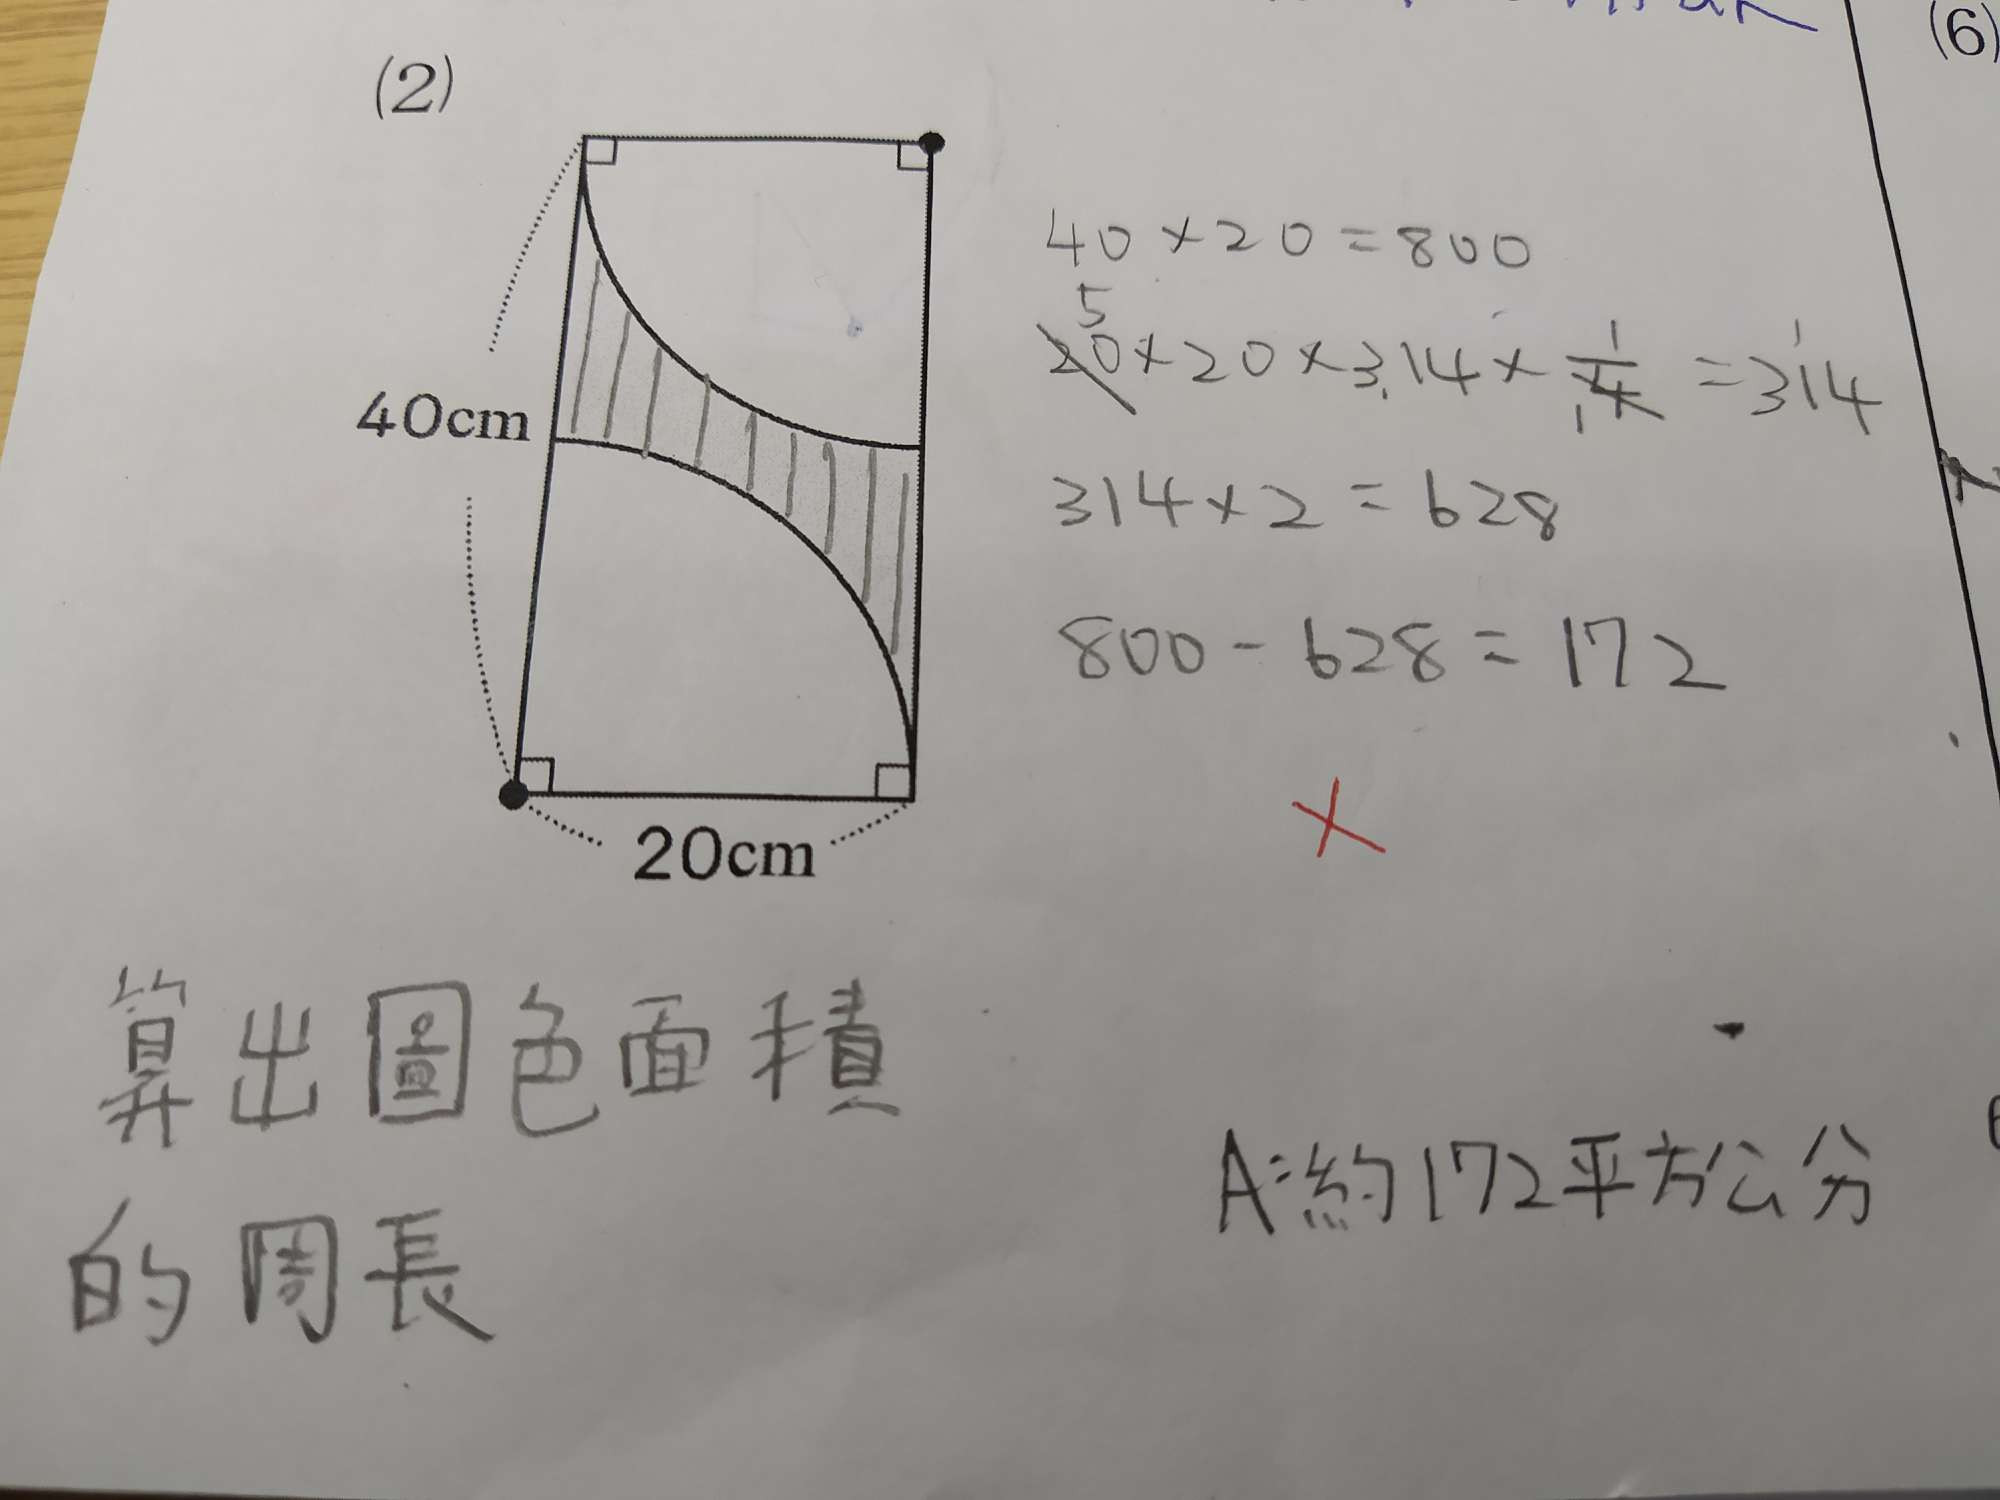 (2)
(6)
40cm
20cm
40×20=800
5
20×20×3.14×1/4=314
1
1
314×2=628
800-628=172
×
算出圖色面積
的周長
A:約172平方公分